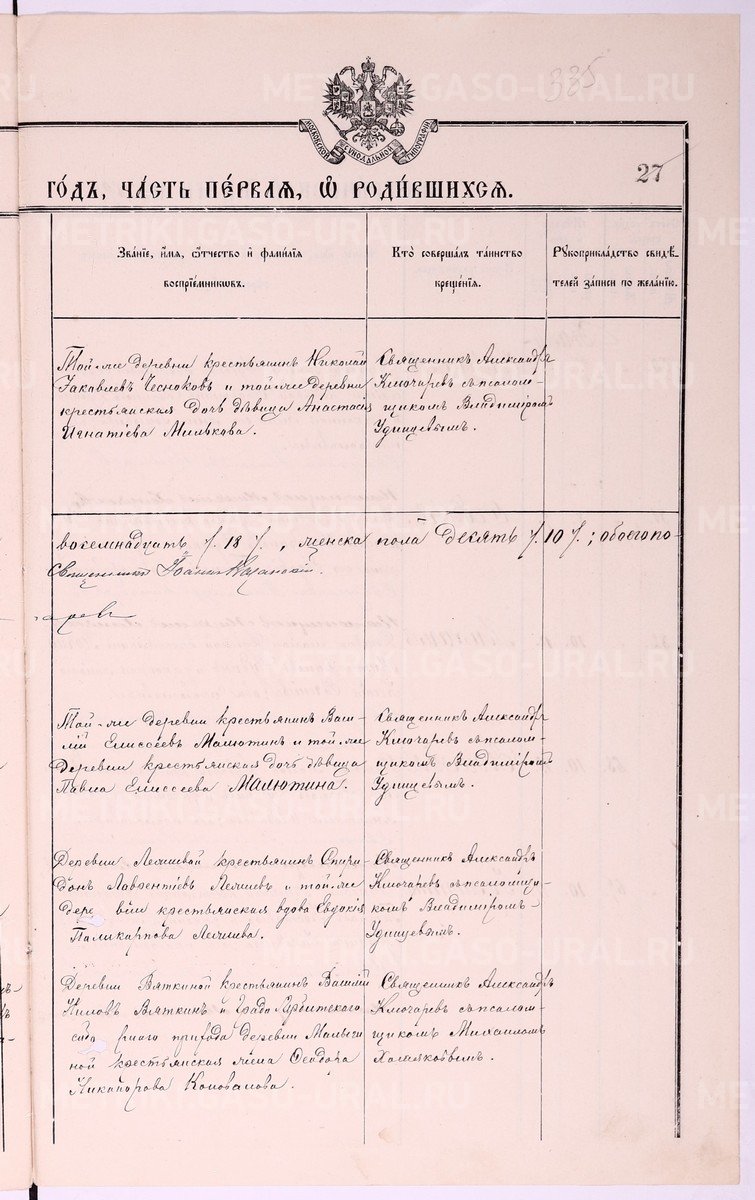 METRIKI.GASO-URAL.RU
335
МОСКОВСКОЙ СУНОДАЛЬНОЙ ТИПОГРАФІИ
27
ГОДЪ, ЧАСТЬ ПЕРВАЯ, Ѿ РОДИВШИХСЯ.
Званіе, имя, отчество и фамилія
воспріемниковъ.
Кто совершалъ таинство
крещенія.
Рукоприкладство свидѣ-
телей записи по желанію.
Той-же деревни крестьянинъ Николай
Іаковлевъ Чесноковъ и той-же деревни
крестьянская дочь дѣвица Анастасія
Игнатіева Милькова.
Священникъ Александръ
Ключаревъ съ псалом-
щикомъ Владиміромъ
Удинцевымъ.
восемнадцать /. 18 /. , женска пола десять /. 10 /. ; обоего по-
Священникъ Іоаннъ Казанскій.
аревъ
Той-же деревни крестьянинъ Васи-
лій Елисеевъ Малютинъ и той-же
деревни крестьянская дочь дѣвица
Павла Елисеева Малютина.
Священникъ Александръ
Ключаревъ съ псалом-
щикомъ Владиміромъ
Удинцевымъ.
Деревни крестьянинъ Спири-
донъ Лаврентіевъ и той-же
деревни крестьянская вдова Евдокія
Паликарпова
Священникъ Александръ
Ключаревъ съ псаломщи-
комъ Владиміромъ
Удинцевымъ.
Деревни Вяткиной крестьянинъ Василій
Ниловъ Вяткинъ и Градо Ирбитскаго
прихода деревни Малыги-
ной крестьянская жена Феодора
Никанорова Коновалова.
Священникъ Александръ
Ключаревъ съ псалом-
щикомъ Михаиломъ
Хомяковымъ.